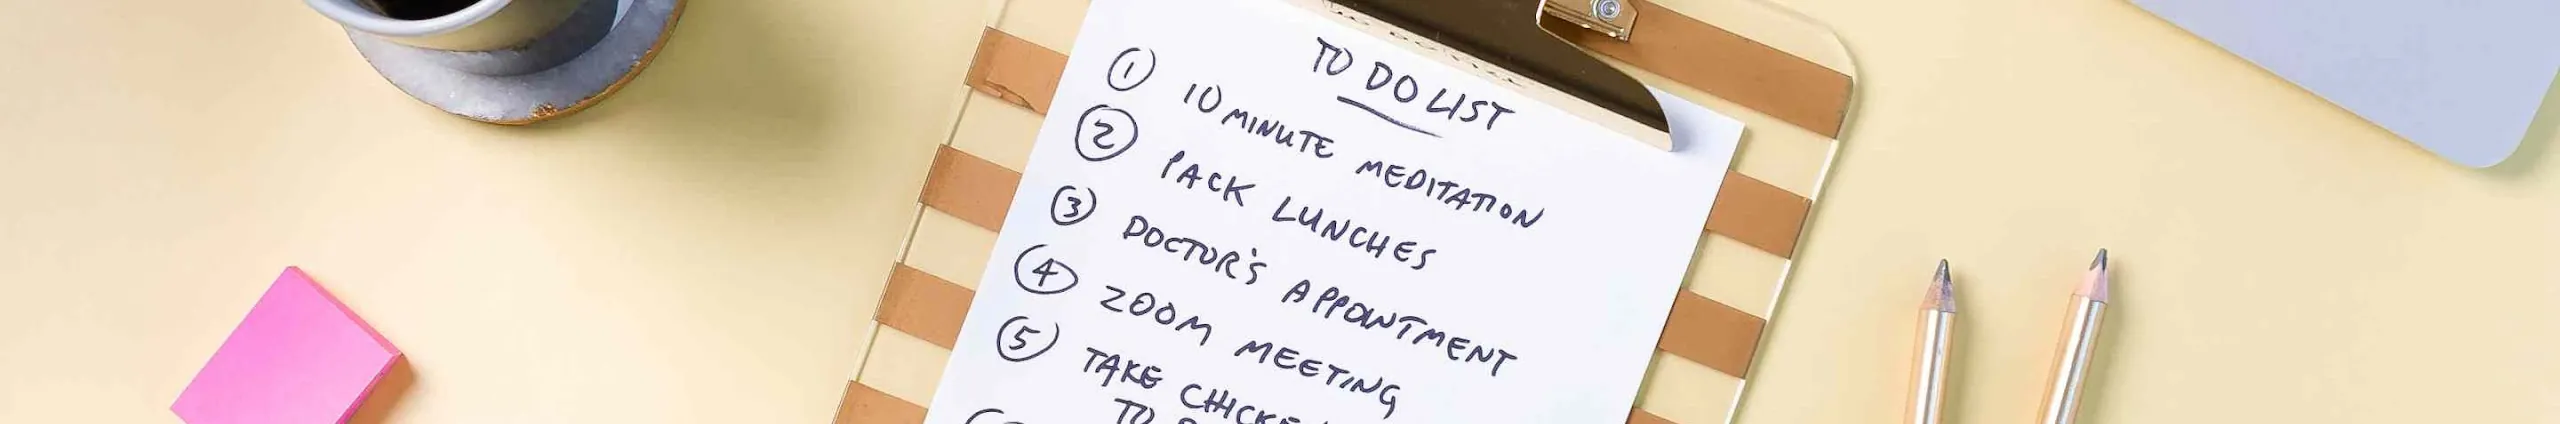 TO DO LIST
① 10 MINUTE MEDITATION
② PACK LUNCHES
③ DOCTOR'S APPOINTMENT
④ ZOOM MEETING
⑤ TAKE
TO